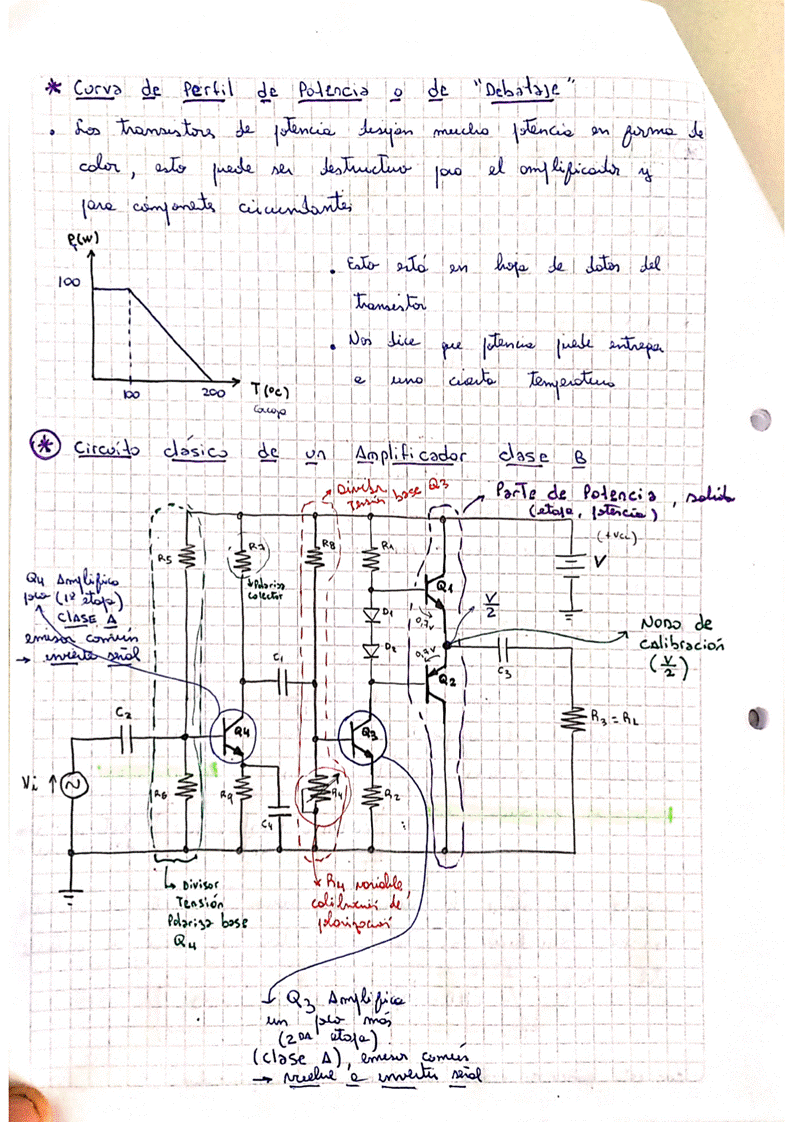 * Curva de Perfil de Potencia o de "Debataje"
• Los transistores de potencia disipan mucha potencia en forma de
calor, esto puede ser destructivo para el amplificador y
para componentes circundantes
P(W)
100
100
200
T(ºC)
carcaza
• Esto está en hoja de datos del
transistor
• Nos dice que potencia puede entregar
a una cierta temperatura
* Circuito clásico de un Amplificador clase B
Divisor
Tensión base Q3
Parte de Potencia, salida
(etapa, potencia)
(+Vcc)
V
R5
R7
Polariza
colector
R8
R1
Q1
0,7v
D1
D2
0,7v
Q2
V/2
C3
Nodo de
calibración
(V/2)
R3 = RL
Q4 Amplifica
poco (1ª etapa)
CLASE A
emisor común
→ invierte señal
C1
C2
Q4
Q3
Vi
R6
R9
C4
R4
R2
Divisor
Tensión
Polariza base
Q4
R4 variable,
calibración de
polarización
Q3 Amplifica
un poco más
(2DA etapa)
(clase A), emisor común
→ vuelve a invertir señal